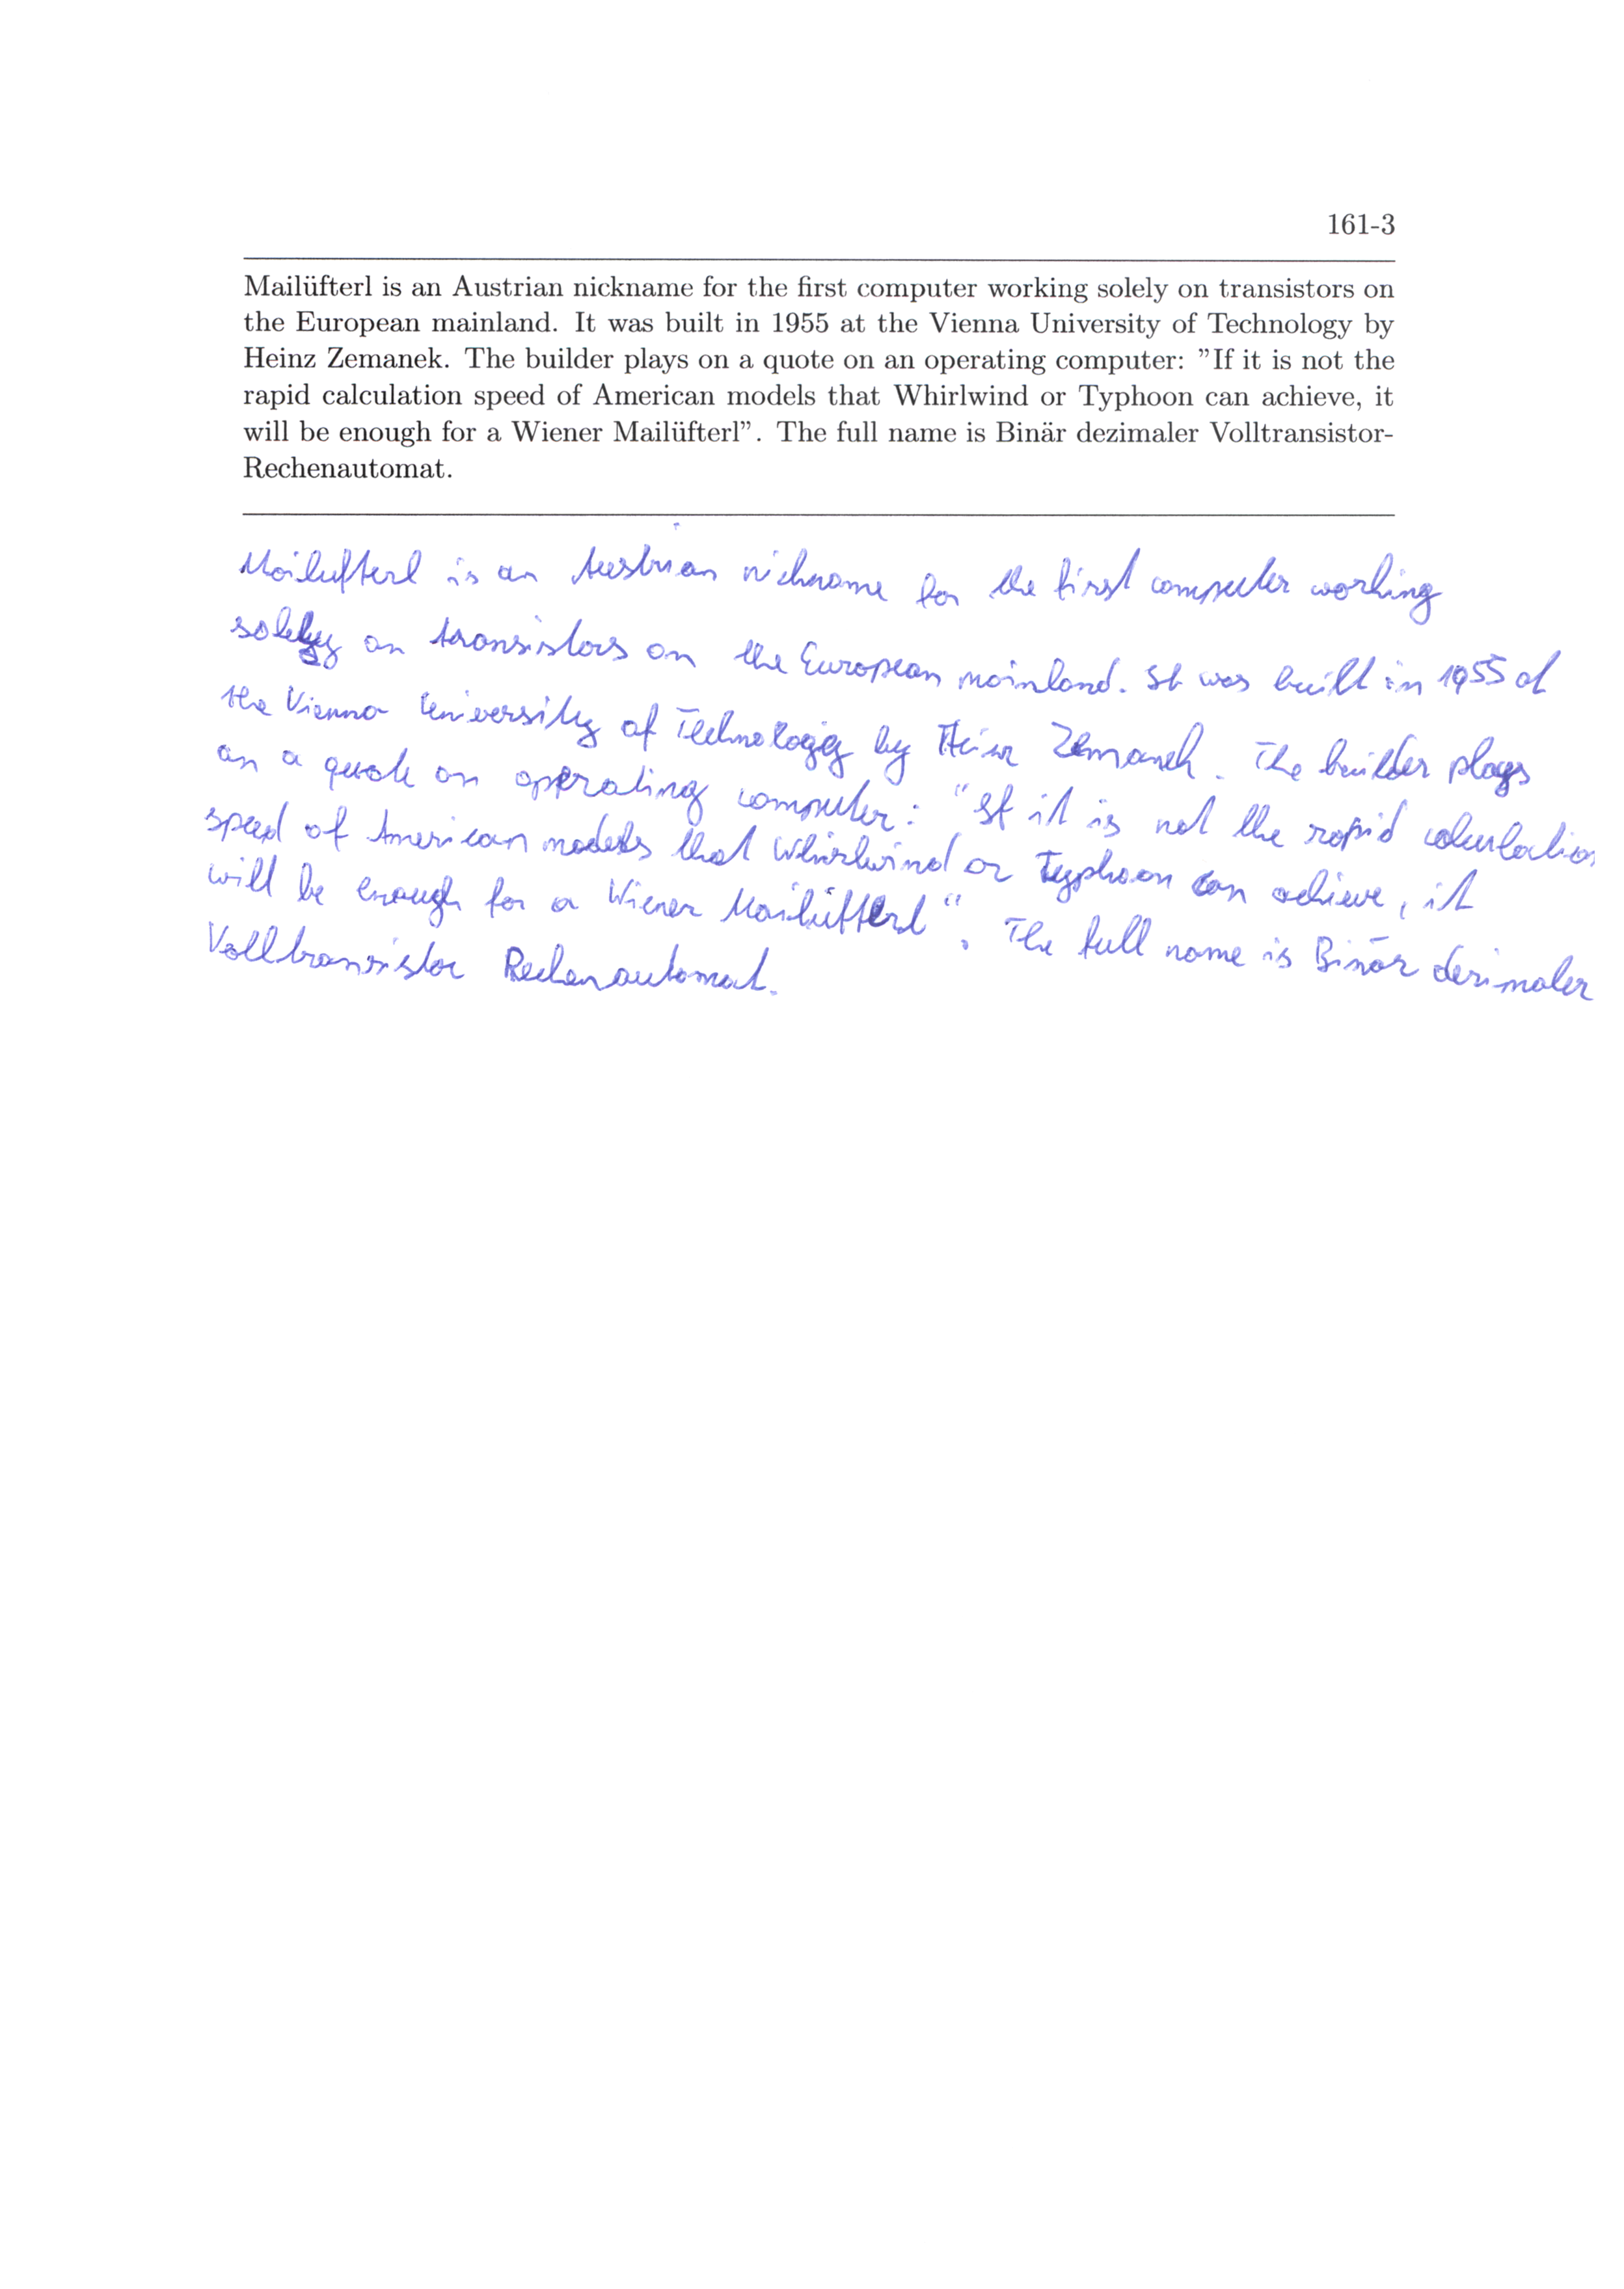 161-3
Mailüfterl is an Austrian nickname for the first computer working solely on transistors on
the European mainland. It was built in 1955 at the Vienna University of Technology by
Heinz Zemanek. The builder plays on a quote on an operating computer: ”If it is not the
rapid calculation speed of American models that Whirlwind or Typhoon can achieve, it
will be enough for a Wiener Mailüfterl”. The full name is Binär dezimaler Volltransistor-
Rechenautomat.
Mailufterl is an Austrian nickname for the first computer working
solely on transistors on the European mainland. It was built in 1955 at
the Vienna University of Technology by Heinz Zemanek. The builder plays
on a quote on operating computer: "If it is not the rapid calculation
speed of American models that Whirlwind or Typhoon can achieve, it
will be enough for a Wiener Mailüfterl". The full name is Binär dezimaler
Volltransistor Rechenautomat.